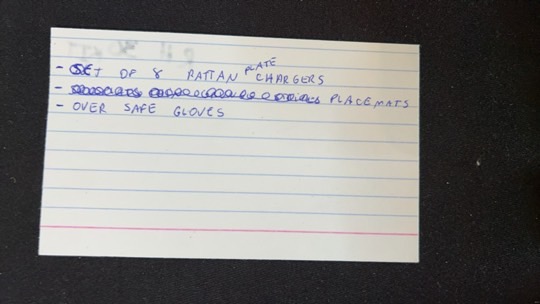 - SET OF 8 RATTAN PLATE CHARGERS
- PLACEMATS
- OVER SAFE GLOVES